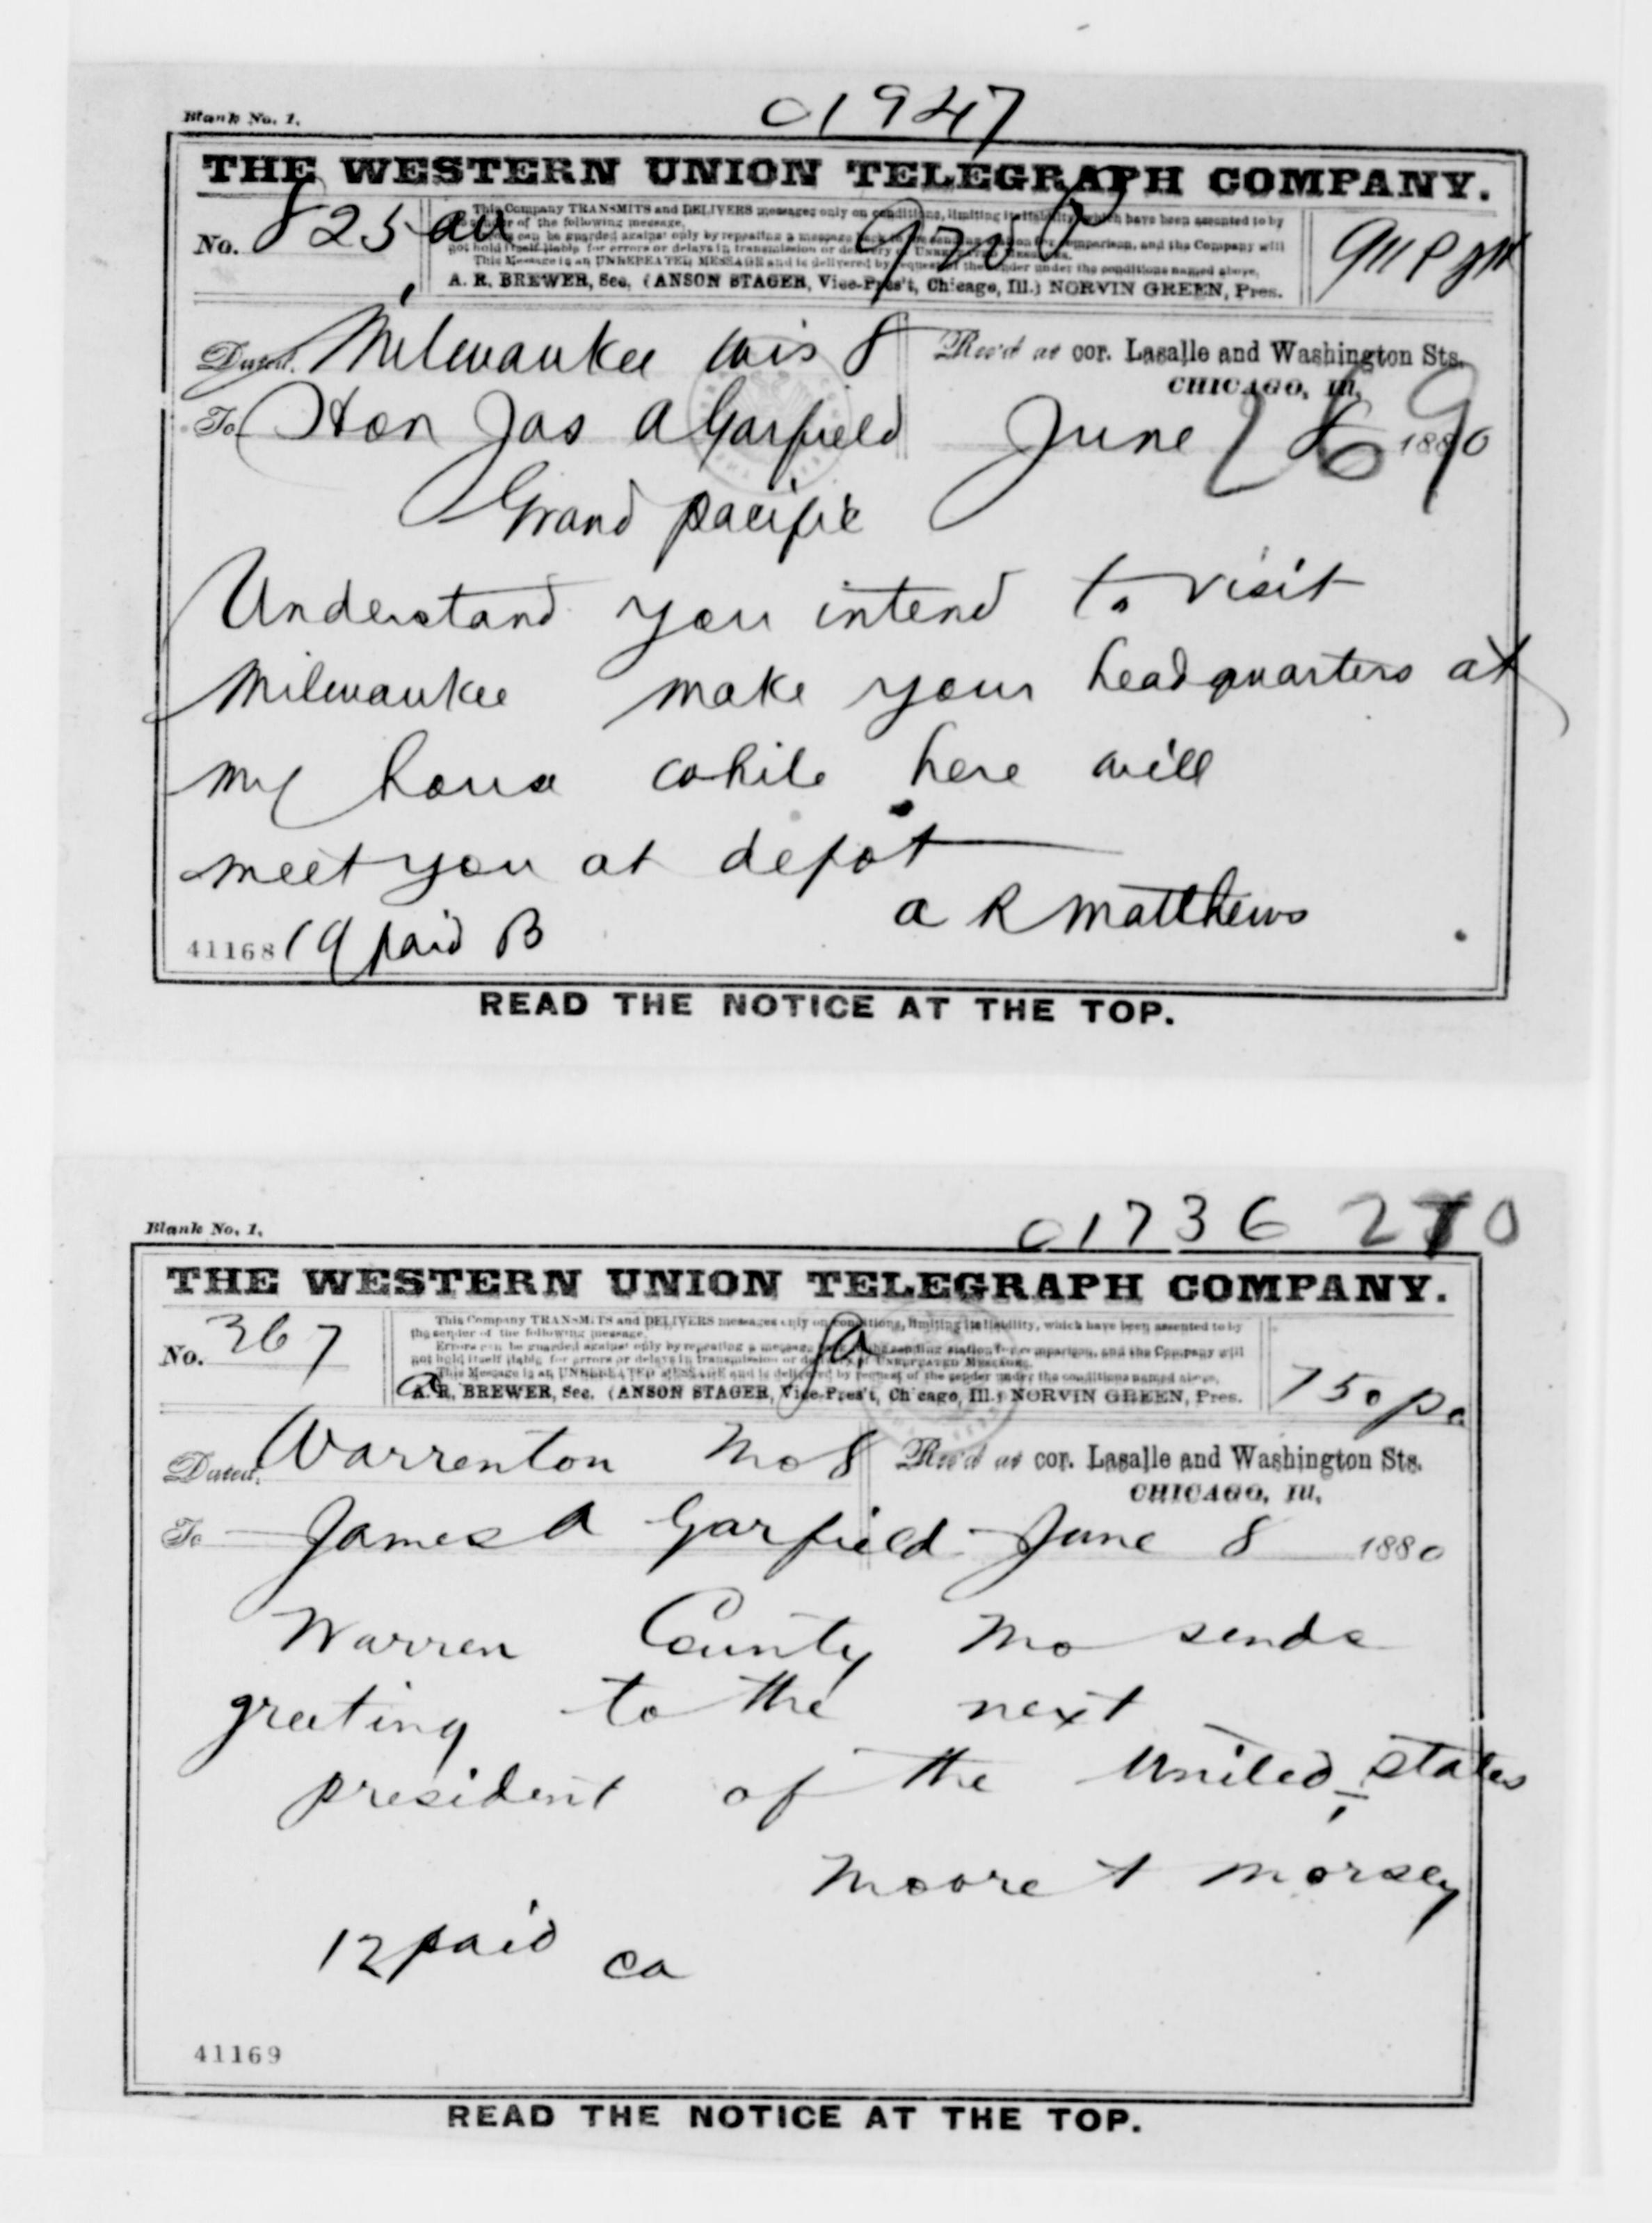 Blank No. 1.
01947
THE WESTERN UNION TELEGRAPH COMPANY.
No. 825
This Company TRANSMITS and DELIVERS messages only on conditions, limiting its liability, which have been assented to by
the sender of the following message.
Errors can be guarded against only by repeating a message back to the sending station for comparison, and the Company will
not hold itself liable for errors or delays in transmission or delivery of UNREPEATED MESSAGES.
This Message is an UNREPEATED MESSAGE and is delivered by request of the sender under the conditions named above.
A. R. BREWER, Sec. (ANSON STAGER, Vice-Pres't, Chicago, Ill.) NORVIN GREEN, Pres.
911 P
Dated, Milwaukee Wis 8
Rec'd at cor. Lasalle and Washington Sts.
CHICAGO, Ill,
To Hon Jas A Garfield
June 8 1880
269
Grand pacific
Understand you intend to visit
Milwaukee make your headquarters at
my house while here will
meet you at depot
A R Matthews
41168 19 paid B
READ THE NOTICE AT THE TOP.
Blank No. 1.
01736 270
THE WESTERN UNION TELEGRAPH COMPANY.
No. 367
This Company TRANSMITS and DELIVERS messages only on conditions, limiting its liability, which have been assented to by
the sender of the following message.
Errors can be guarded against only by repeating a message back to the sending station for comparison, and the Company will
not hold itself liable for errors or delays in transmission or delivery of UNREPEATED MESSAGES.
This Message is an UNREPEATED MESSAGE and is delivered by request of the sender under the conditions named above.
A. R. BREWER, Sec. (ANSON STAGER, Vice-Pres't, Chicago, Ill.) NORVIN GREEN, Pres.
750 p
Dated, Warrenton Mo 8
Rec'd at cor. Lasalle and Washington Sts.
CHICAGO, Ill,
To James A Garfield June 8 1880
Warren County Mo sends
greeting to the next
president of the United States
Moore & Morsey
12 paid ca
41169
READ THE NOTICE AT THE TOP.